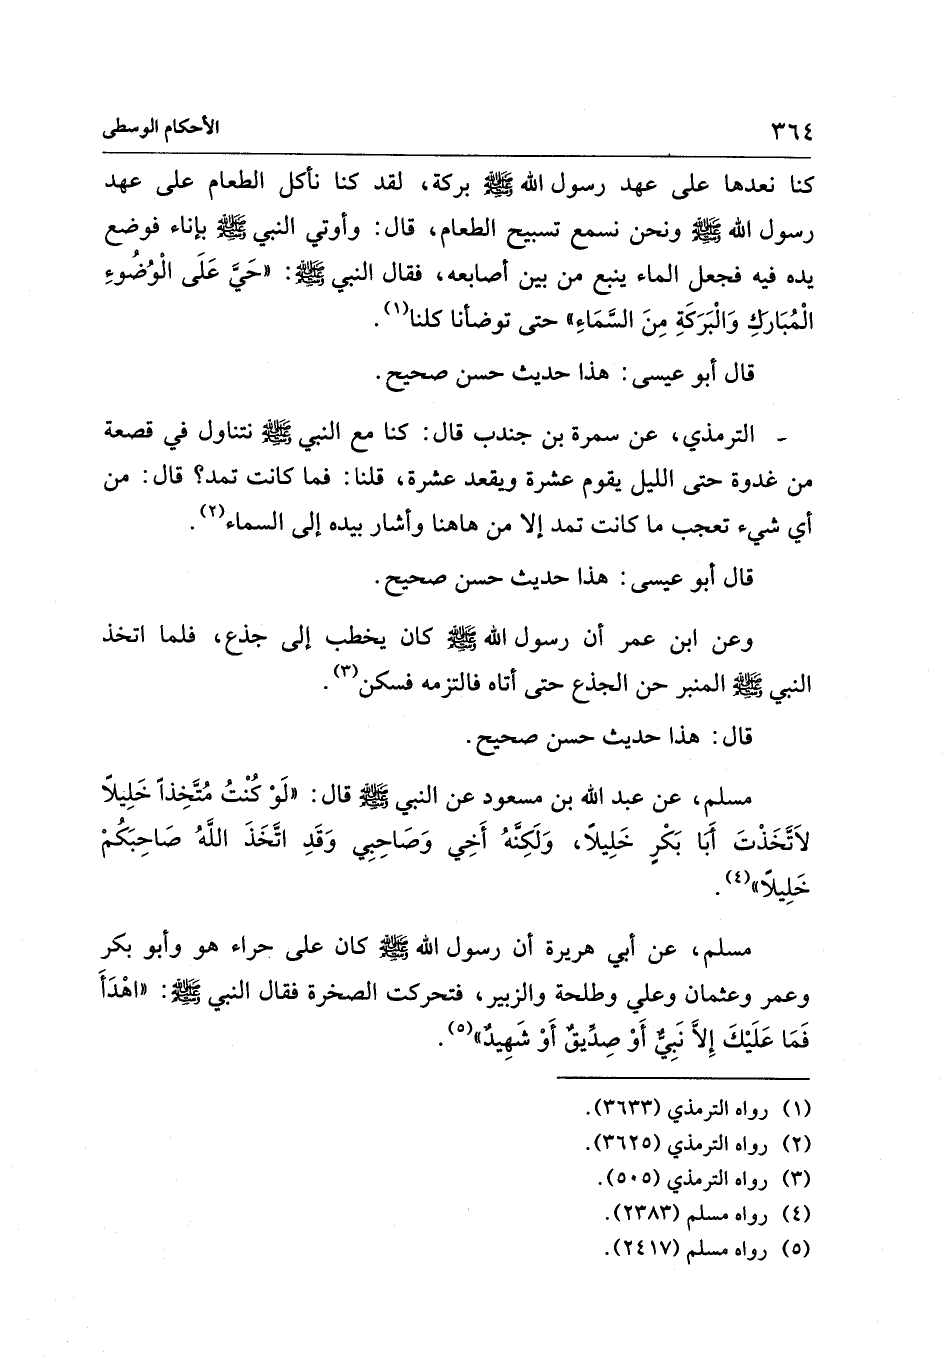 ٣٦٤ الأحكام الوسطى
كنا نعدها على عهد رسول الله ﷺ بركة، لقد كنا نأكل الطعام على عهد
رسول الله ﷺ ونحن نسمع تسبيح الطعام، قال: وأوتي النبي ﷺ بإناء فوضع
يده فيه فجعل الماء ينبع من بين أصابعه، فقال النبي ﷺ: «حَيَّ عَلَى الْوُضُوءِ
الْمُبَارَكِ وَالْبَرَكَةِ مِنَ السَّمَاءِ» حتى توضأنا كلنا(١).
قال أبو عيسى: هذا حديث حسن صحيح.
ـ الترمذي، عن سمرة بن جندب قال: كنا مع النبي ﷺ نتناول في قصعة
من غدوة حتى الليل يقوم عشرة ويقعد عشرة، قلنا: فما كانت تمد؟ قال: من
أي شيء تعجب ما كانت تمد إلا من هاهنا وأشار بيده إلى السماء(٢).
قال أبو عيسى: هذا حديث حسن صحيح.
وعن ابن عمر أن رسول الله ﷺ كان يخطب إلى جذع، فلما اتخذ
النبي ﷺ المنبر حن الجذع حتى أتاه فالتزمه فسكن(٣).
قال: هذا حديث حسن صحيح.
مسلم، عن عبد الله بن مسعود عن النبي ﷺ قال: «لَوْ كُنْتُ مُتَّخِذاً خَلِيلاً
لاَتَّخَذْتَ أَبَا بَكْرٍ خَلِيلاً، وَلَكِنَّهُ أَخِي وَصَاحِبِي وَقَدِ اتَّخَذَ اللَّهُ صَاحِبَكُمْ
خَلِيلاً»(٤).
مسلم، عن أبي هريرة أن رسول الله ﷺ كان على حراء هو وأبو بكر
وعمر وعثمان وعلي وطلحة والزبير، فتحركت الصخرة فقال النبي ﷺ: «اهْدَأَ
فَمَا عَلَيْكَ إِلاَّ نَبِيٌّ أَوْ صِدِّيقٌ أَوْ شَهِيدٌ»(٥).
(١) رواه الترمذي (٣٦٣٣).
(٢) رواه الترمذي (٣٦٢٥).
(٣) رواه الترمذي (٥٠٥).
(٤) رواه مسلم (٢٣٨٣).
(٥) رواه مسلم (٢٤١٧).